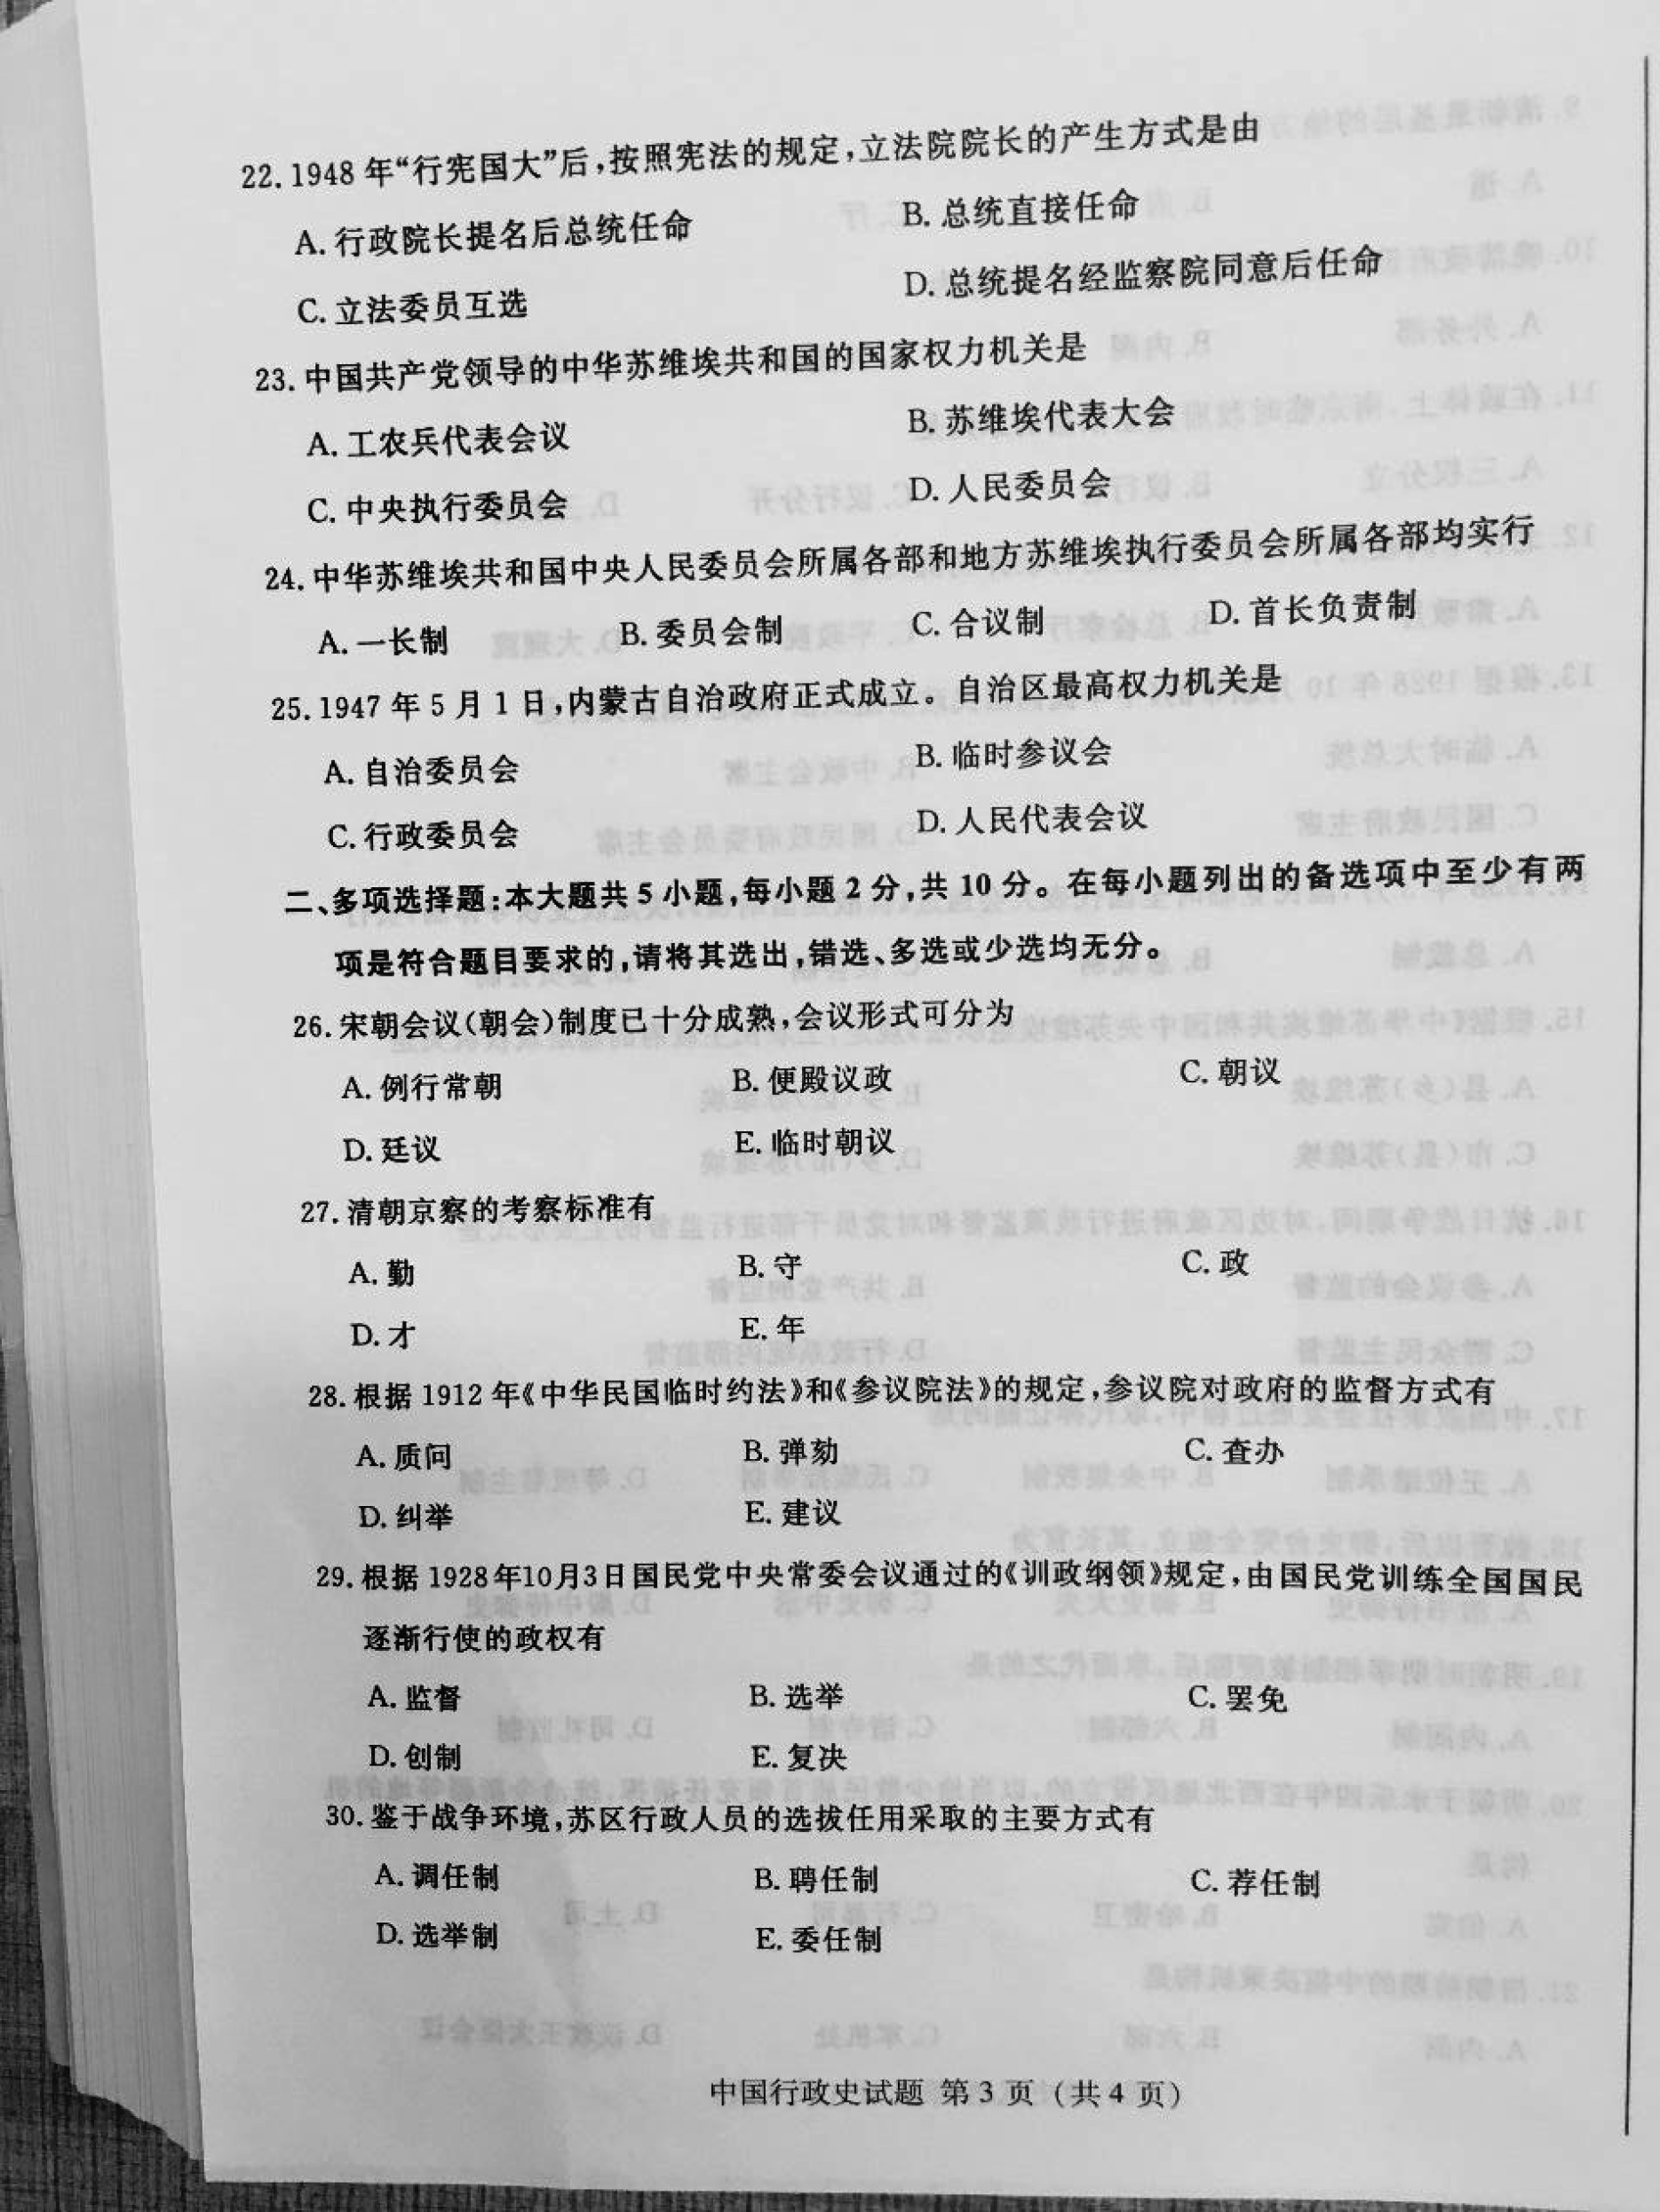 22. 1948 年“行宪国大”后,按照宪法的规定,立法院院长的产生方式是由
A. 行政院长提名后总统任命 B. 总统直接任命
C. 立法委员互选 D. 总统提名经监察院同意后任命
23. 中国共产党领导的中华苏维埃共和国的国家权力机关是
A. 工农兵代表会议 B. 苏维埃代表大会
C. 中央执行委员会 D. 人民委员会
24. 中华苏维埃共和国中央人民委员会所属各部和地方苏维埃执行委员会所属各部均实行
A. 一长制 B. 委员会制 C. 合议制 D. 首长负责制
25. 1947 年 5 月 1 日,内蒙古自治政府正式成立。自治区最高权力机关是
A. 自治委员会 B. 临时参议会
C. 行政委员会 D. 人民代表会议
二、多项选择题:本大题共 5 小题,每小题 2 分,共 10 分。在每小题列出的备选项中至少有两
项是符合题目要求的,请将其选出,错选、多选或少选均无分。
26. 宋朝会议(朝会)制度已十分成熟,会议形式可分为
A. 例行常朝 B. 便殿议政 C. 朝议
D. 廷议 E. 临时朝议
27. 清朝京察的考察标准有
A. 勤 B. 守 C. 政
D. 才 E. 年
28. 根据 1912 年《中华民国临时约法》和《参议院法》的规定,参议院对政府的监督方式有
A. 质问 B. 弹劾 C. 查办
D. 纠举 E. 建议
29. 根据 1928年10月3日国民党中央常委会议通过的《训政纲领》规定,由国民党训练全国国民
逐渐行使的政权有
A. 监督 B. 选举 C. 罢免
D. 创制 E. 复决
30. 鉴于战争环境,苏区行政人员的选拔任用采取的主要方式有
A. 调任制 B. 聘任制 C. 荐任制
D. 选举制 E. 委任制
中国行政史试题 第 3 页 (共 4 页)